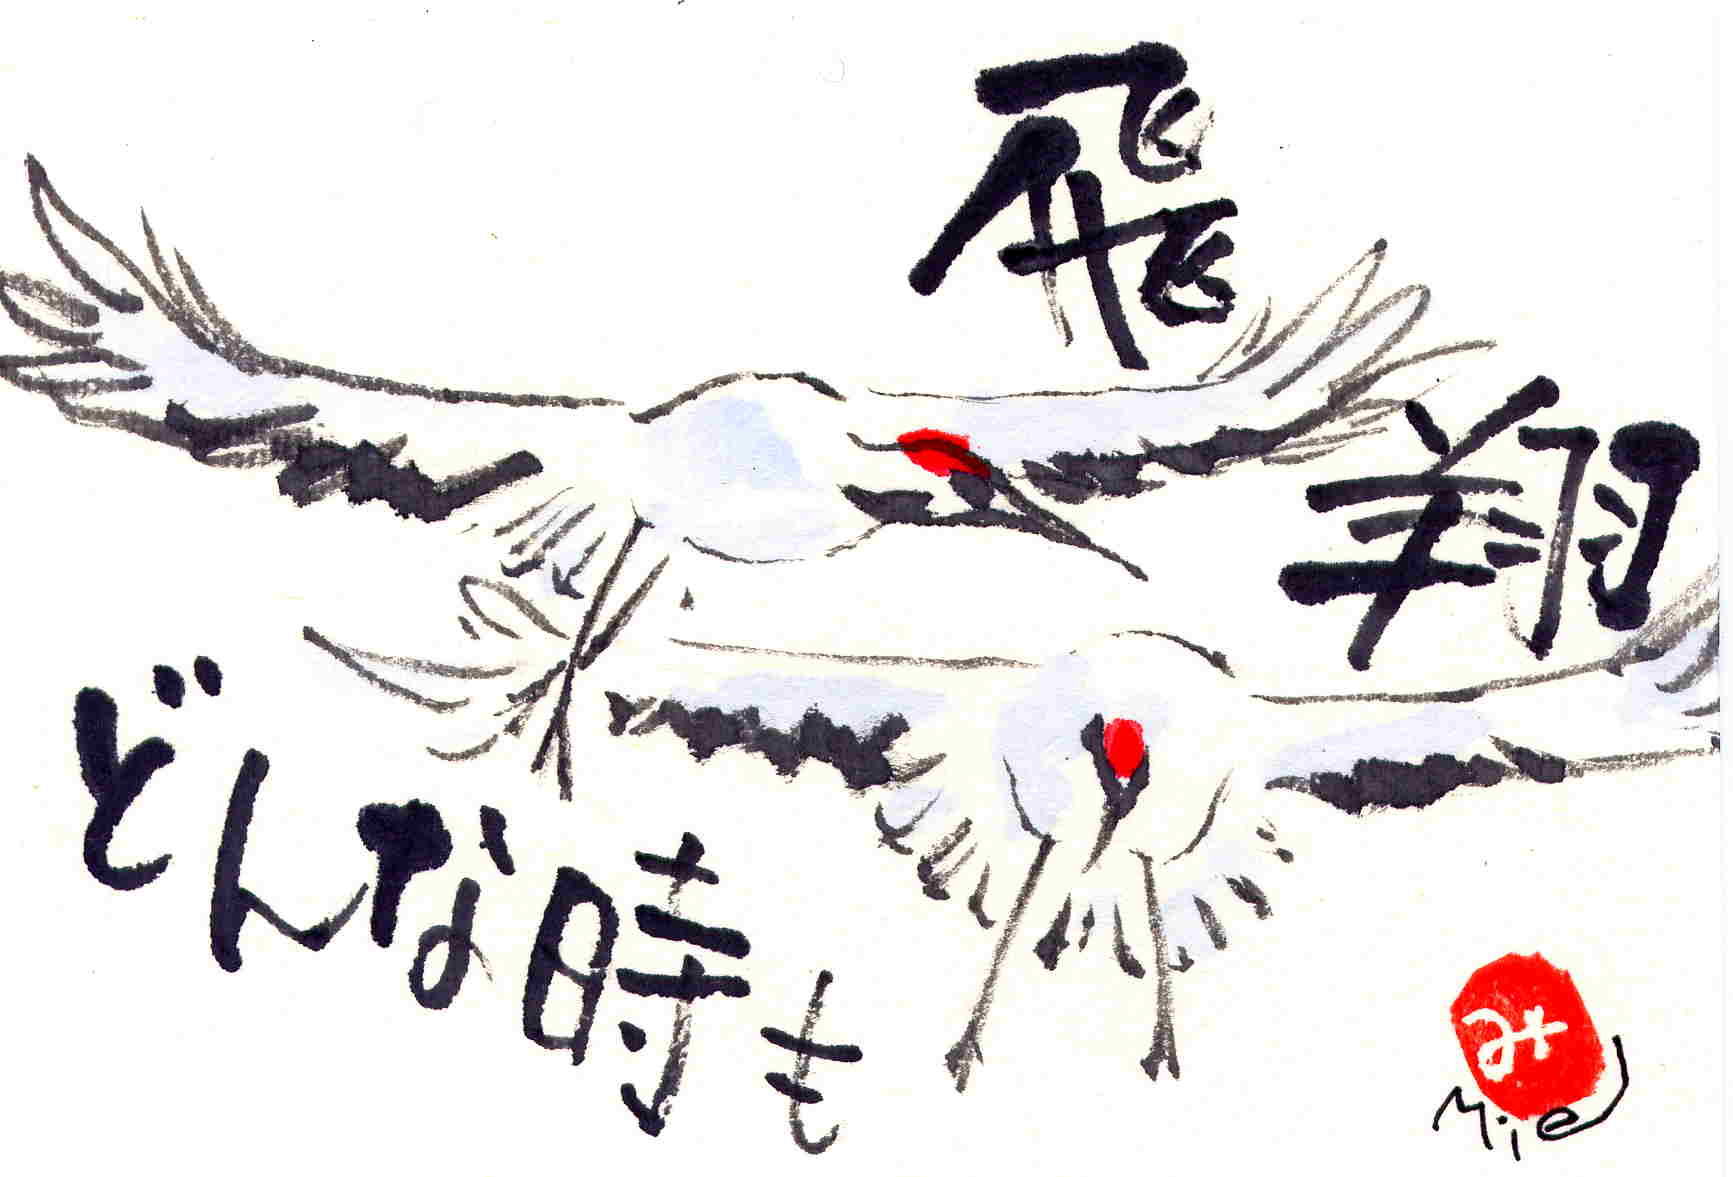 飛翔
どんな時も
み
Mie